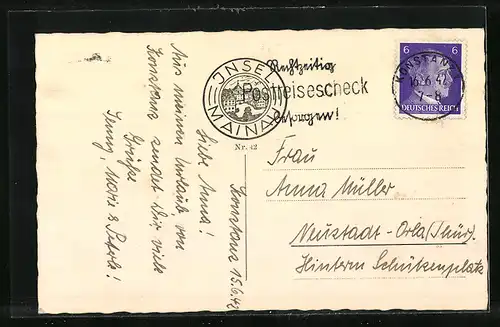 Konstanz 15.6.42
Liebe Anna!
Aus meinem Urlaub von
Konstanz sendet Dir viele
Grüße
Jnny, Marie &
INSEL
MAINAU
Nr. 42
Rechtzeitig
Postreisescheck
besorgen!
6 6
KONSTANZ
16.6.42
7-8
DEUTSCHES REICH
Frau
Anna Müller
Neustadt-Orla (Thür).
Hinterm Schützenplatz